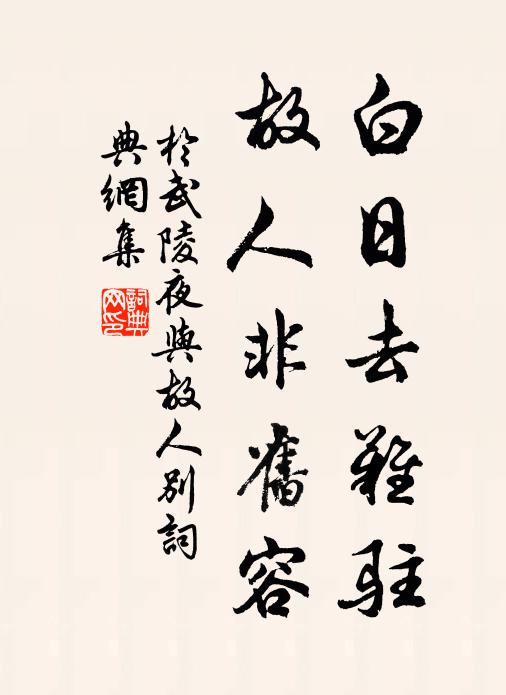 白日去難駐
故人非舊容
於武陵夜與故人別詞
典網集
詞典
网印